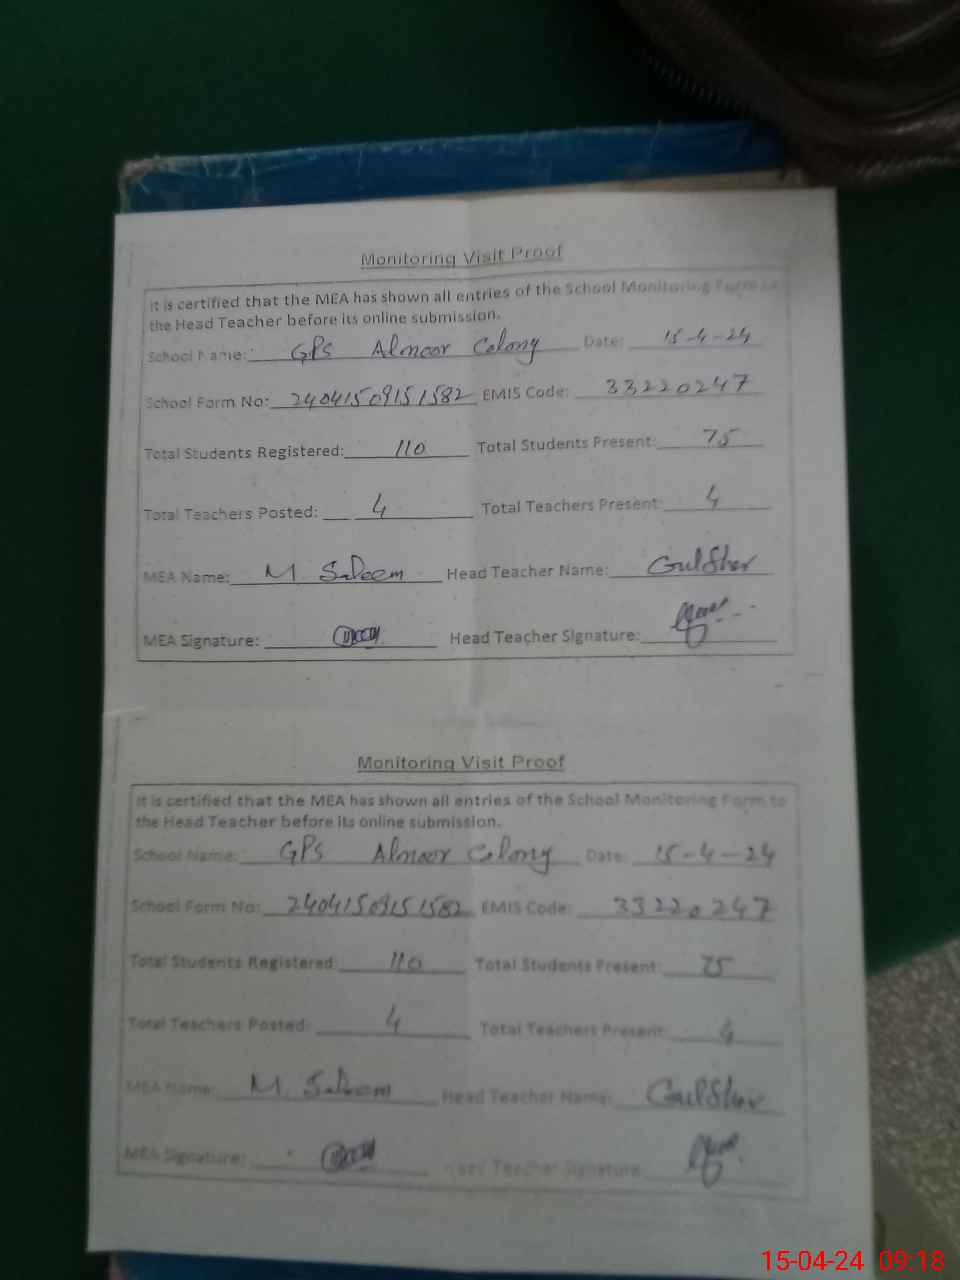 Monitoring Visit Proof
It is certified that the MEA has shown all entries of the School Monitoring Form to
the Head Teacher before its online submission.
School Name: GPS Almoor Colony Date: 15-4-24
School Form No: 24041509151582 EMIS Code: 33220247
Total Students Registered: 110 Total Students Present: 75
Total Teachers Posted: 4 Total Teachers Present: 4
MEA Name: M. Saleem Head Teacher Name: Gul Sher
MEA Signature: Head Teacher Signature:
Monitoring Visit Proof
It is certified that the MEA has shown all entries of the School Monitoring Form to
the Head Teacher before its online submission.
School Name: GPS Almoor Colony Date: 15-4-24
School Form No: 24041509151582 EMIS Code: 33220247
Total Students Registered: 110 Total Students Present: 75
Total Teachers Posted: 4 Total Teachers Present: 4
MEA Name: M. Saleem Head Teacher Name: Gul Sher
MEA Signature: Head Teacher Signature:
15-04-24 09:18